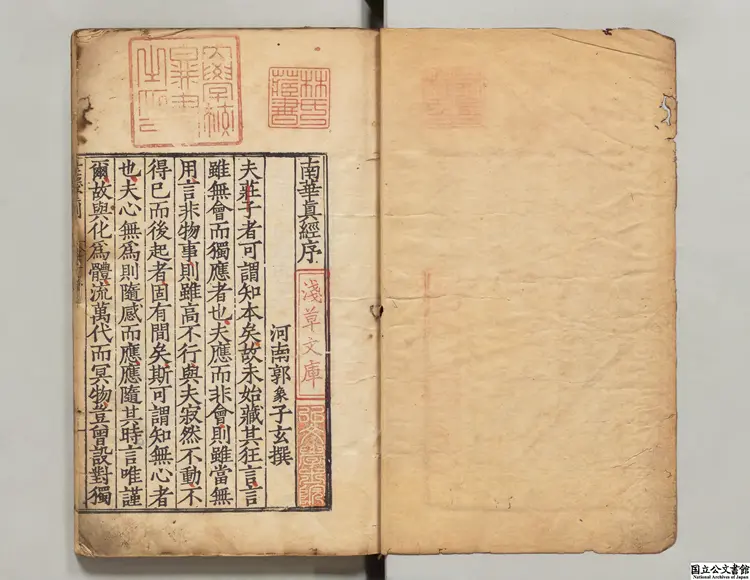 林氏藏書
南華眞經序
淺草文庫
河南郭象子玄撰
夫莊子者可謂知本矣故未始藏其狂言言
雖無會而獨應者也夫應而非會則雖當無
用言非物事則雖高不行與夫寂然不動不
得已而後起者固有間矣斯可謂知無心者
也夫心無爲則隨感而應應隨其時言唯謹
爾故與化爲體流萬代而冥物豈曾設對獨
国立公文書館
National Archives of Japan